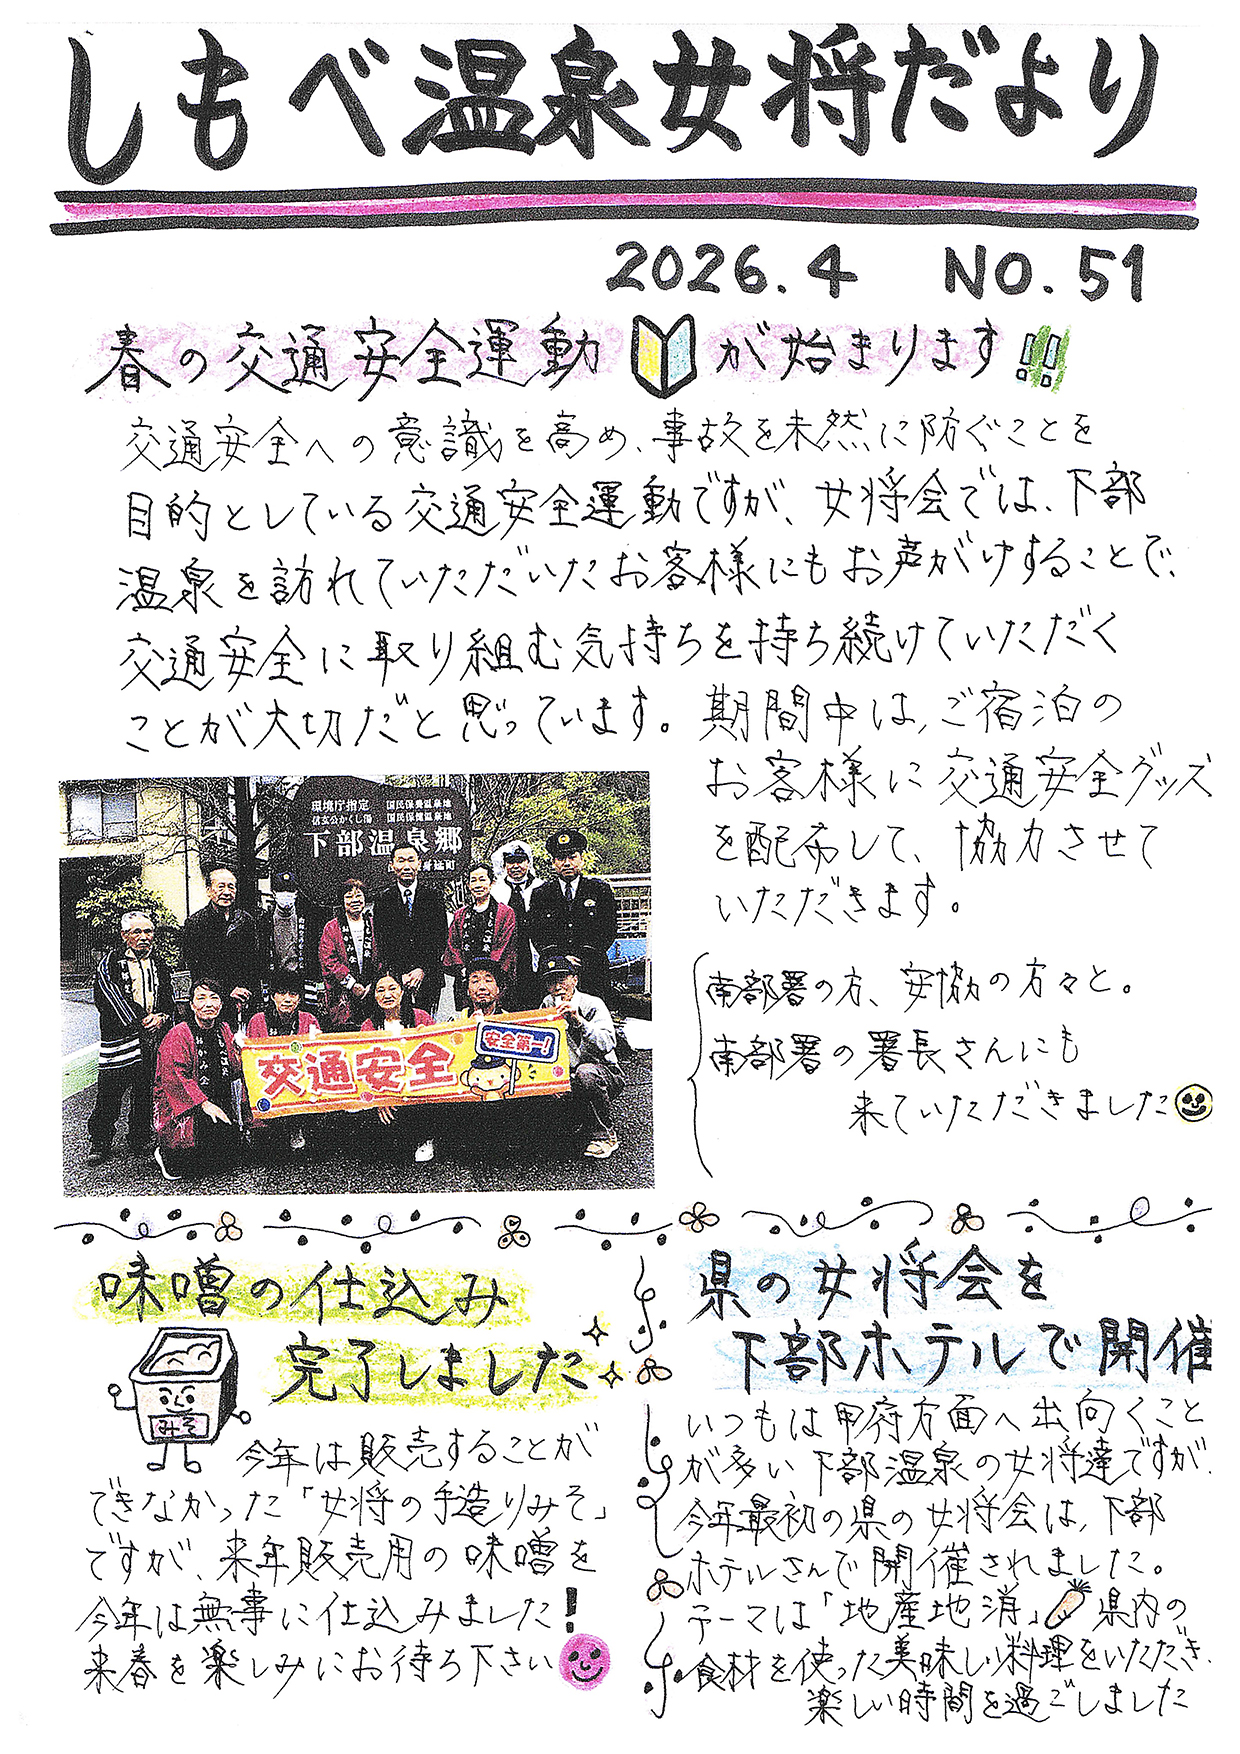 しもべ温泉女将だより
2026.4 NO.51
春の交通安全運動が始まります!!
交通安全への意識を高め、事故を未然に防ぐことを
目的としている交通安全運動ですが、女将会では、下部
温泉を訪れていただいたお客様にもお声がけすることで、
交通安全に取り組む気持ちを持ち続けていただく
ことが大切だと思っています。期間中は、ご宿泊の
お客様に交通安全グッズ
を配布して、協力させて
いただきます。
環境庁指定 国民保養温泉地
信玄公かくし湯 国民保健温泉地
下部温泉郷
交通安全
安全第一!
南部署の方、安協の方々と。
南部署の署長さんにも
来ていただきました
味噌の仕込み
完了しました
みそ
今年は販売することが
できなかった「女将の手造りみそ」
ですが、来年販売用の味噌を
今年は無事に仕込みました!
来春を楽しみにお待ち下さい
県の女将会を
下部ホテルで開催
いつもは甲府方面へ出向くこと
が多い下部温泉の女将達ですが、
今年最初の県の女将会は、下部
ホテルさんで開催されました。
テーマは「地産地消」県内の
食材を使った美味しい料理をいただき、
楽しい時間を過ごしました